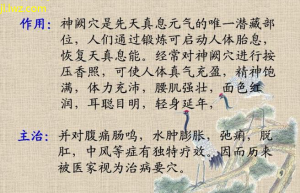 作用：神阙穴是先天真息元气的唯一潜藏部
位，人们通过锻炼可启动人体胎息，
恢复先天真息能。经常对神阙穴进行按
压香照，可使人体真气充盈，精神饱
满，体力充沛，腰肌强壮，面色红
润，耳聪目明，轻身延年，
主治：并对腹痛肠鸣，水肿膨胀，泄痢，脱
肛，中风等症有独特疗效。因而历来
被医家视为治病要穴。